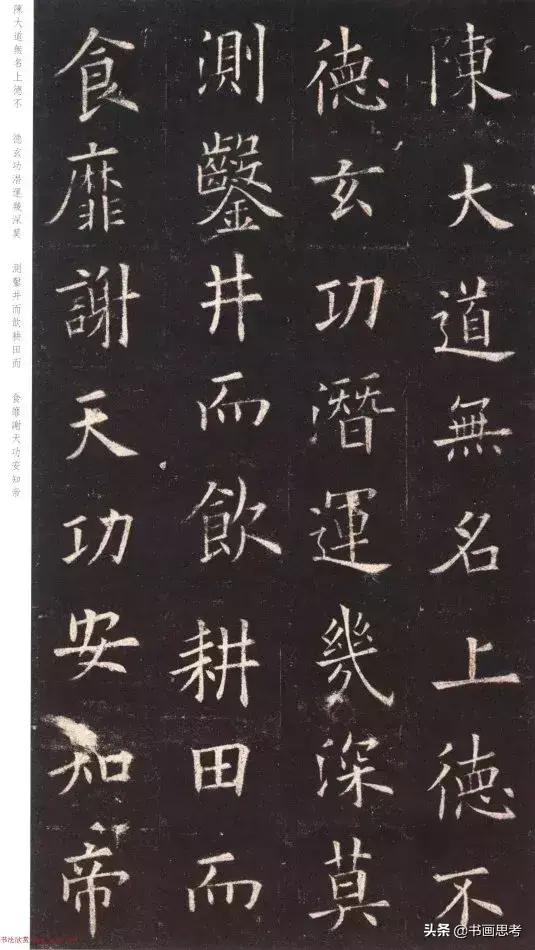 陳大道無名上德不
德玄功潛運幾深莫
測鑿井而飲耕田而
食靡謝天功安知帝
陳大道無名上德不
德玄功潜運幾深莫
測鑿井而飲耕田而
食靡謝天功安知帝
书法欣赏
头条 @书画思考